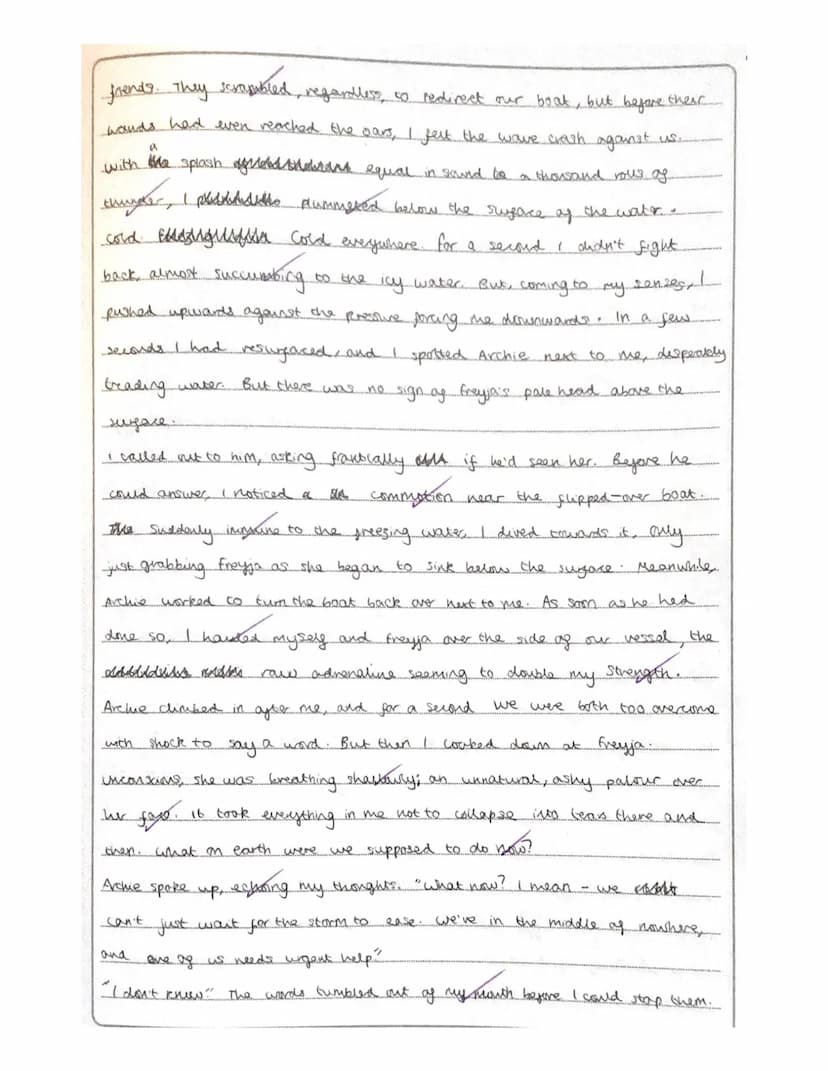 friends. They scrambled, regardless, to redirect our boat, but before their
hands had even reached the oars, I felt the wave crash against us.
with a splash equal in sound to a thousand rolls of
thunder, I plummeted below the surface of the water.
cold. Cold everywhere. For a second I didn't fight
back, almost succumbing to the icy water. But, coming to my senses, I
pushed upwards against the pressure forcing me downwards. In a few
seconds I had resurfaced, and I spotted Archie next to me, desperately
treading water. But there was no sign of Freyja's pale head above the
surface.
I called out to him, asking frantically if he'd seen her. Before he
could answer, I noticed a commotion near the flipped-over boat.
Suddenly immune to the freezing water, I dived towards it, only
just grabbing Freyja as she began to sink below the surface. Meanwhile,
Archie worked to turn the boat back over next to me. As soon as he had
done so, I hauled myself and Freyja over the side of our vessel, the
raw adrenaline seeming to double my strength.
Archie climbed in after me, and for a second we were both too overcome
with shock to say a word. But then I looked down at Freyja.
unconscious, she was breathing shallowly; an unnatural, ashy palour over
her face. It took everything in me not to collapse into tears there and
then. What on earth were we supposed to do now?
Archie spoke up, echoing my thoughts. "What now? I mean - we
can't just wait for the storm to ease. We've in the middle of nowhere,
and one of us needs urgent help"
"I don't know" The words tumbled out of my mouth before I could stop them.